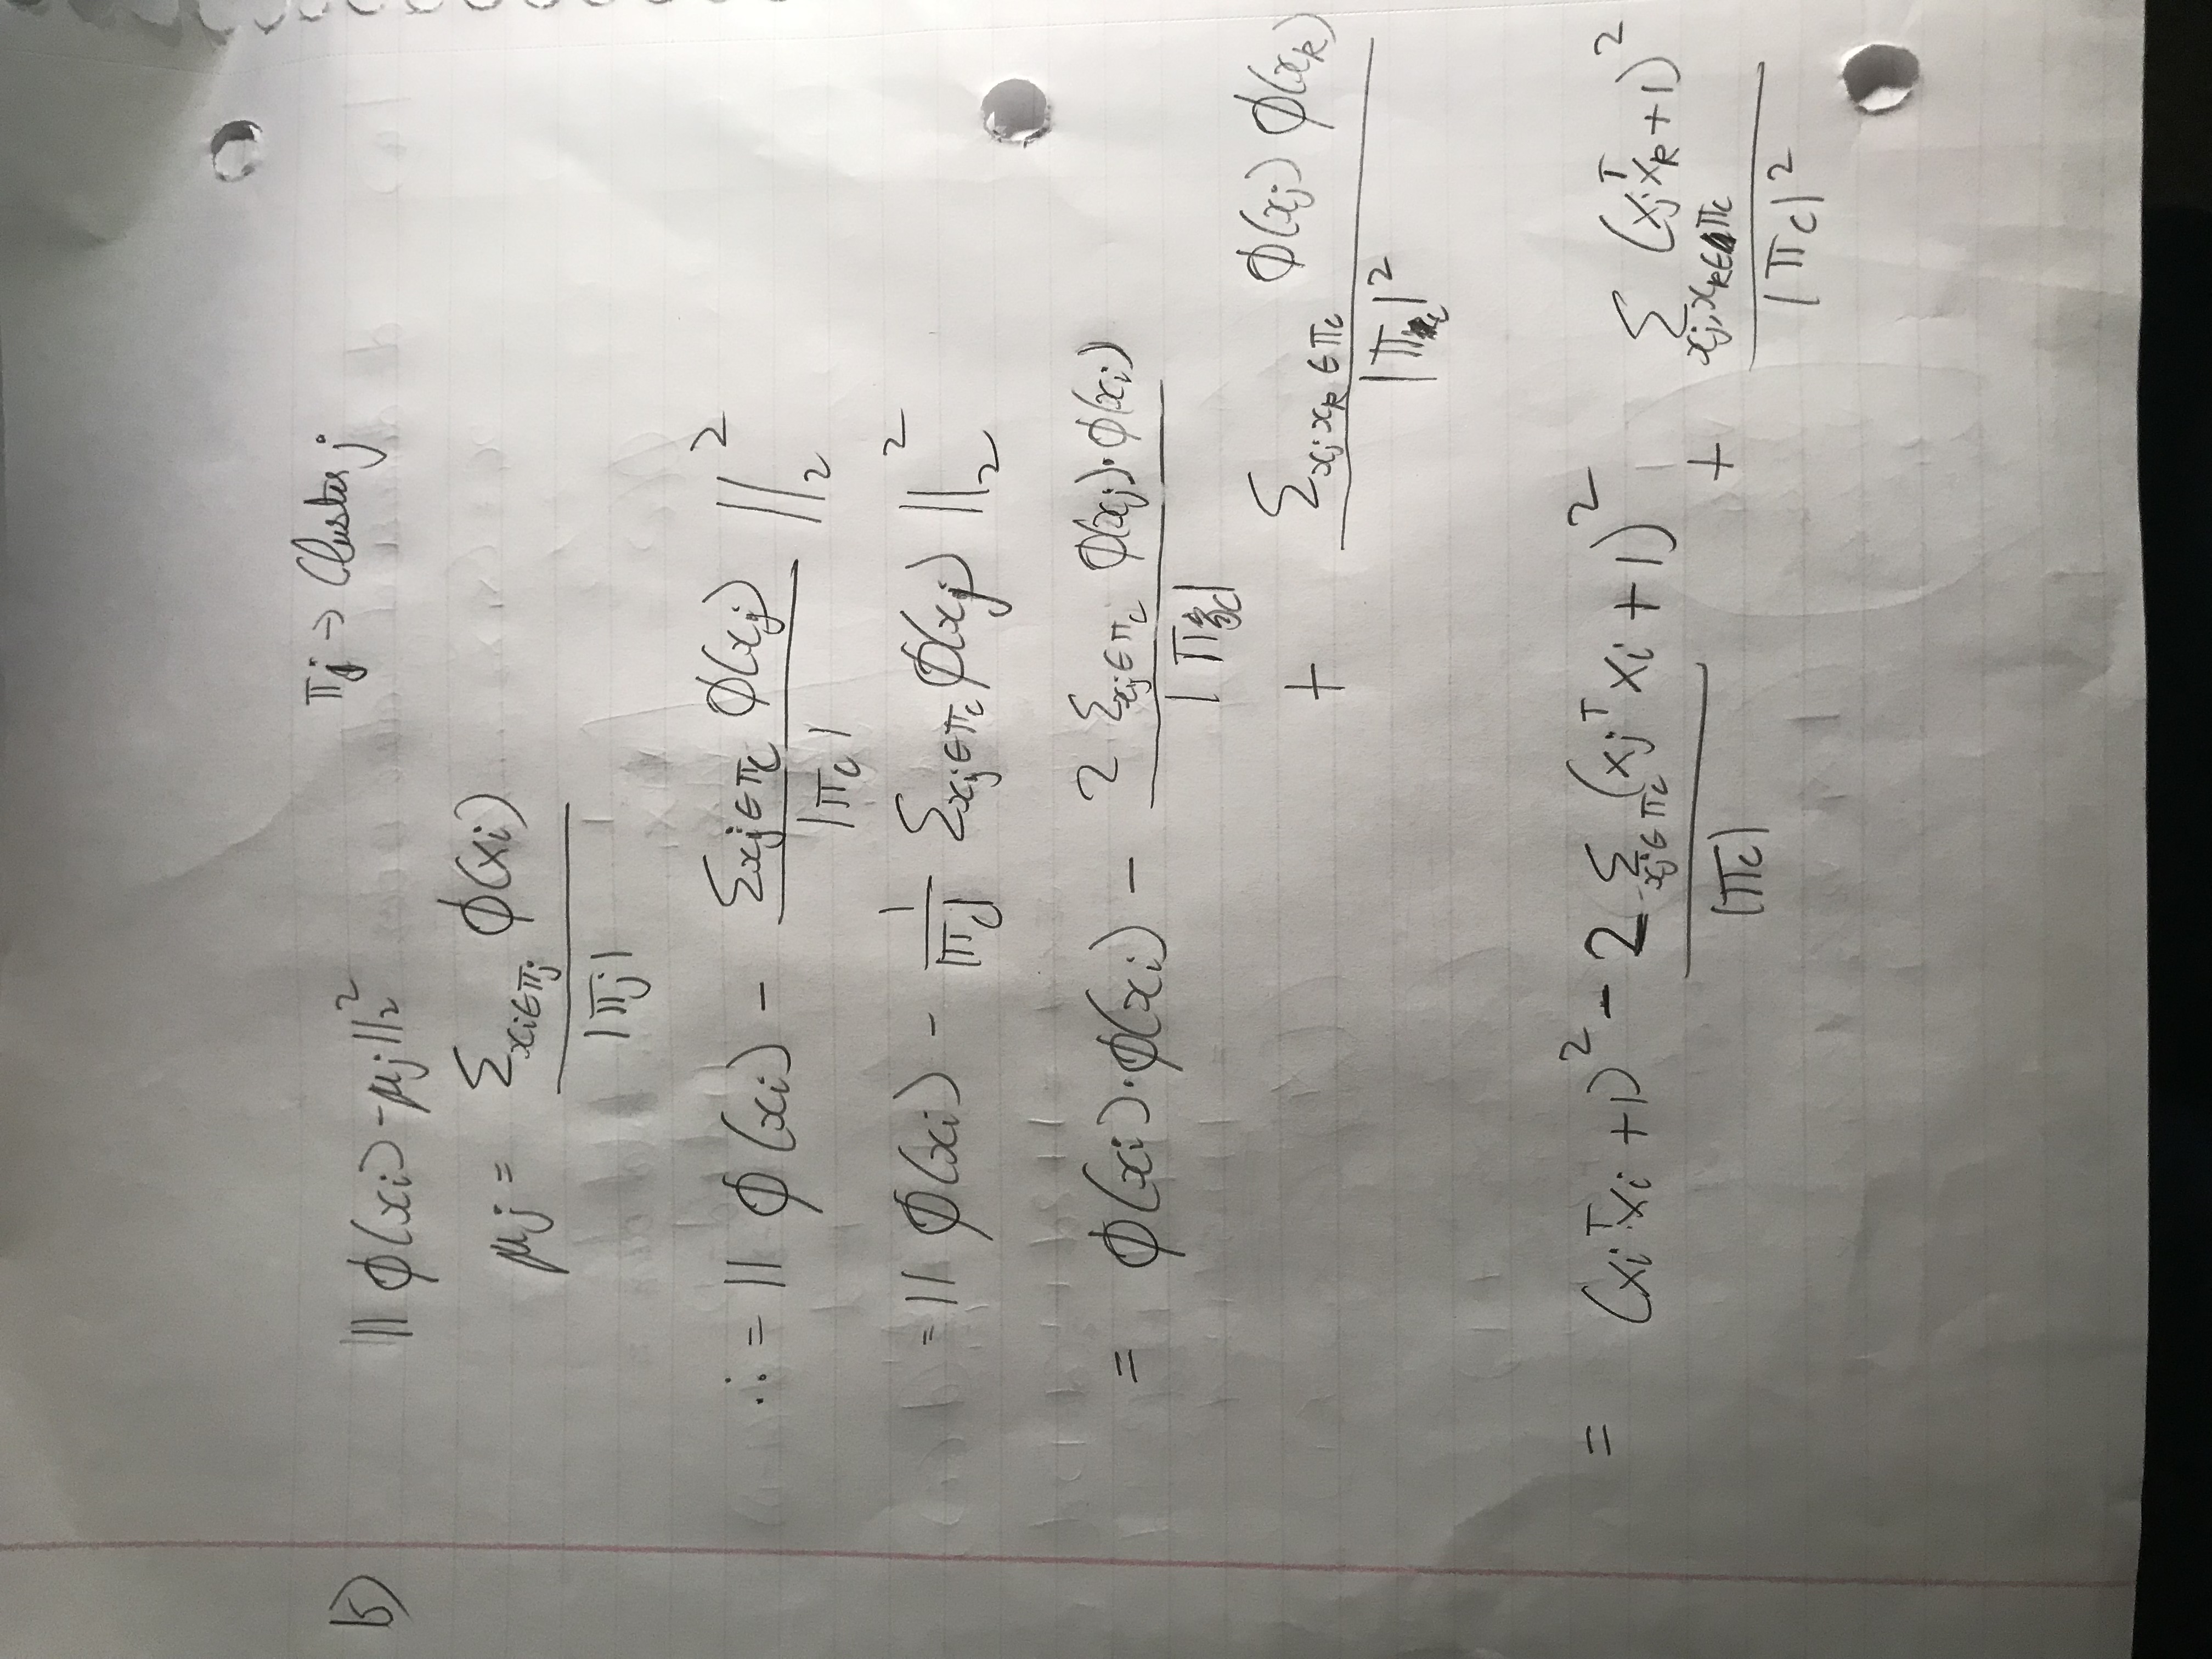 b) ||ϕ(xi) - μj||₂²
πj → Cluster j
μj = Σ_{xi∈πj} ϕ(xi) / |πj|
∴ = || ϕ(xi) - Σ_{xj∈πc} ϕ(xj) / |πc| ||₂²
= || ϕ(xi) - 1/|πc| Σ_{xj∈πc} ϕ(xj) ||₂²
= ϕ(xi)·ϕ(xi) - 2 Σ_{xj∈πc} ϕ(xj)·ϕ(xi) / |πc|
+ Σ_{xj xk ∈πc} ϕ(xj) ϕ(xk) / |πc|²
= (xiᵀxi + 1)² - 2 Σ_{xj∈πc} (xjᵀxi + 1)² / |πc| + Σ_{xj,xk∈πc} (xjᵀxk + 1)² / |πc|²